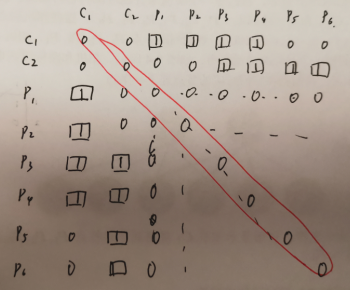 C1 C2 P1 P2 P3 P4 P5 P6
C1 0 0 1 1 1 1 0 0
C2 0 0 0 0 1 1 1 1
P1 1 0 0 0 0 0 0 0
P2 1 0 0 0
P3 1 1 0 0
P4 1 1 0 0
P5 0 1 0 0
P6 0 1 0 0